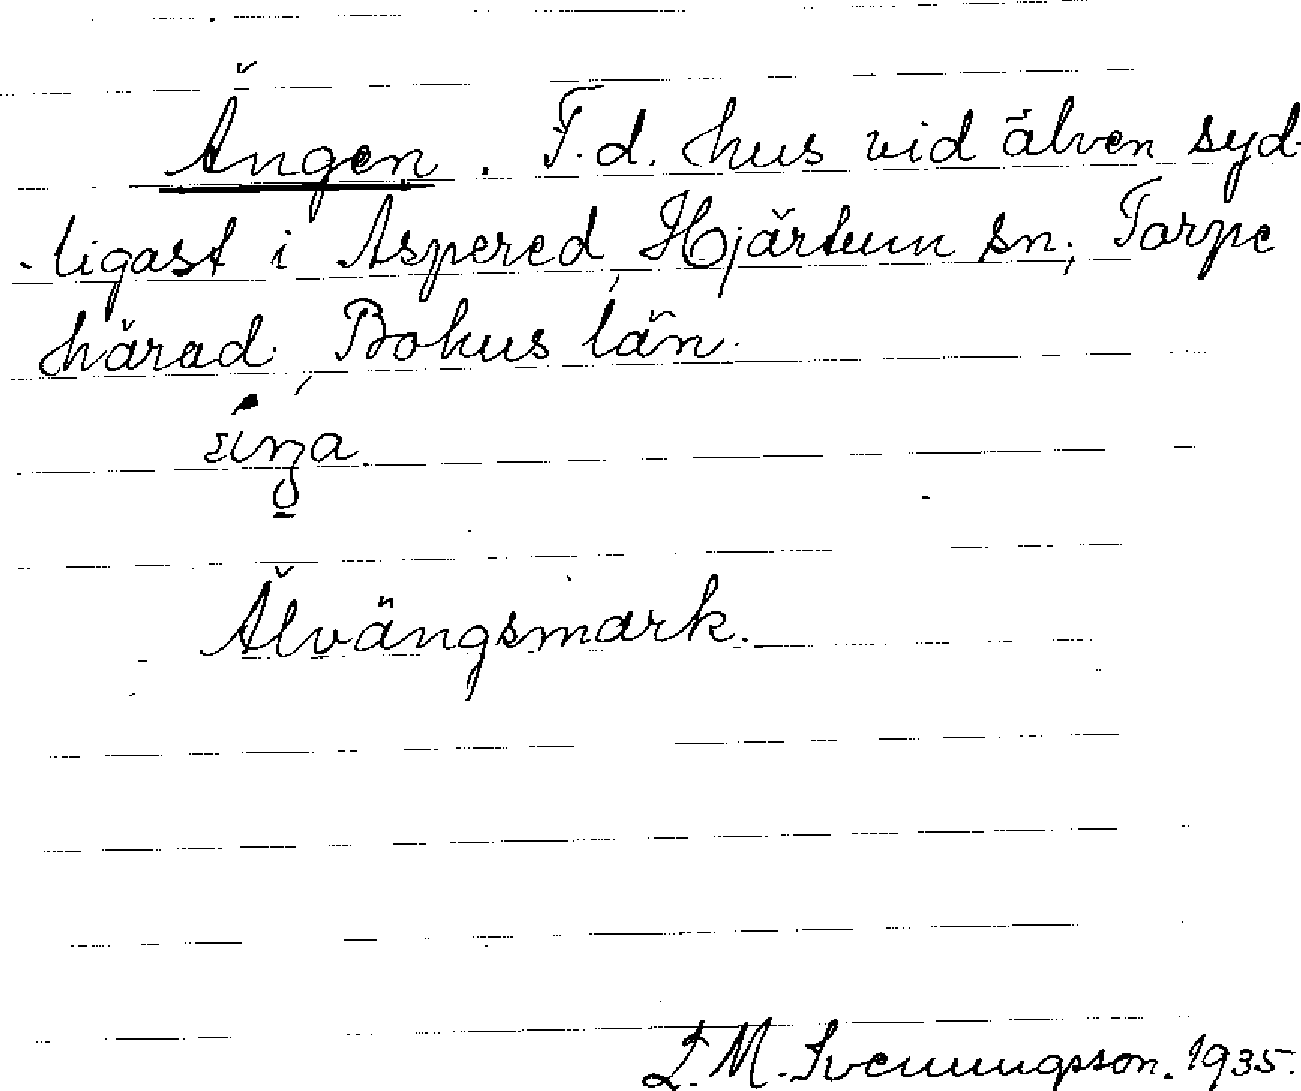 Ängen. F.d. hus vid älven syd-
ligast i Aspered, Hjärtum sn; Torpe
härad, Bohus län.
Älvängsmark.
M. Svenungsson. 1935.